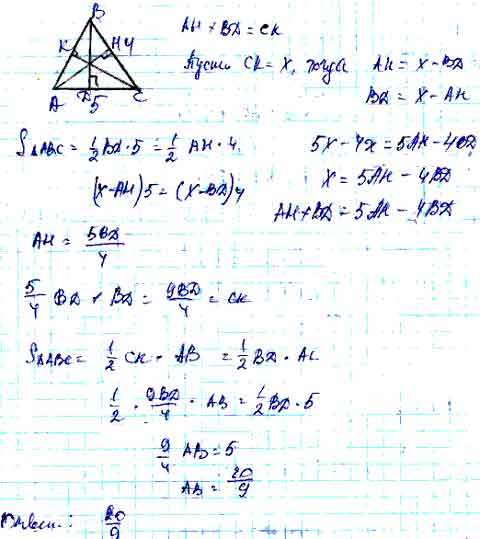 B
K
H 4
A
D
5
C
AH + BD = CK
Пусть CK = X, тогда AH = X - BD
BD = X - AH
S△ABC = 1/2 BD · 5 = 1/2 AH · 4
(X - AH) 5 = (X - BD) 4
5X - 4X = 5AH - 4BD
X = 5AH - 4BD
AH + BD = 5AH - 4BD
AH = 5BD/4
5/4 BD + BD = 9BD/4 = CK
S△ABC = 1/2 CK · AB = 1/2 BD · AC
1/2 · 9BD/4 · AB = 1/2 BD · 5
9/4 AB = 5
AB = 20/9
Ответ: 20/9